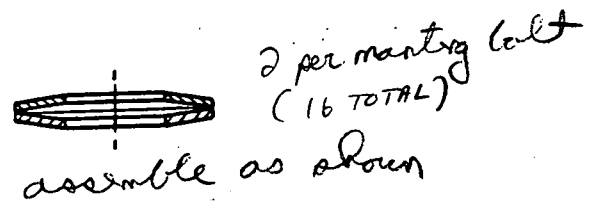 2 per mounting bolt
(16 TOTAL)
assemble as shown